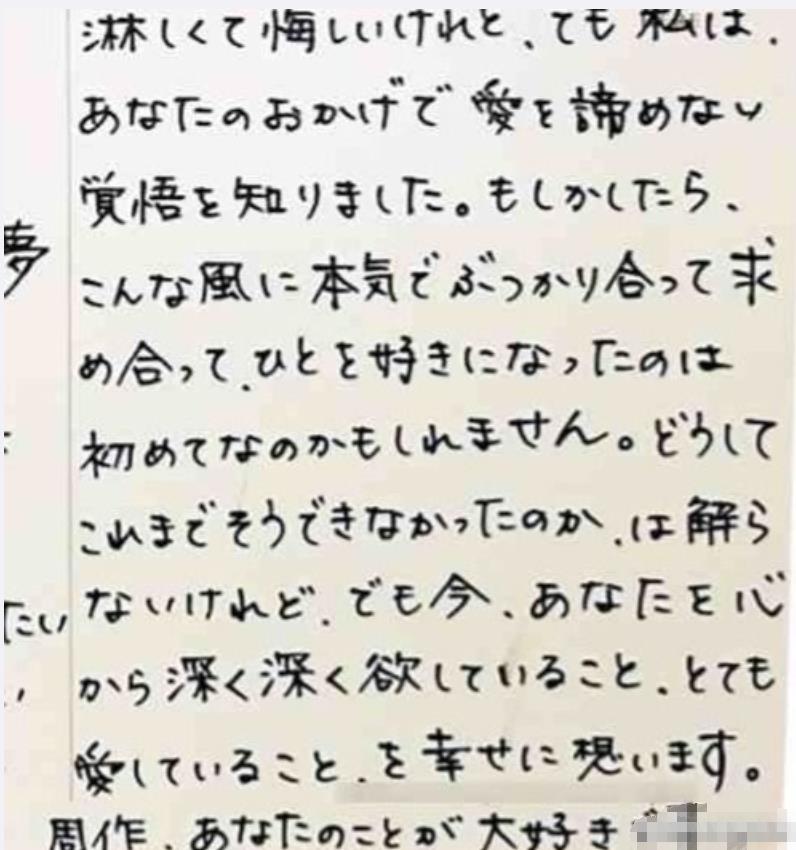 淋しくて悔しいけれど、でも私は、
あなたのおかげで愛を諦めない
覚悟を知りました。もしかしたら、
こんな風に本気でぶつかり合って求
め合って、ひとを好きになったのは
初めてなのかもしれません。どうして
これまでそうできなかったのか、は解ら
ないけれど、でも今、あなたを心
から深く深く欲していること、とても
愛していること、を幸せに想います。
周作、あなたのことが大好き
夢
たい